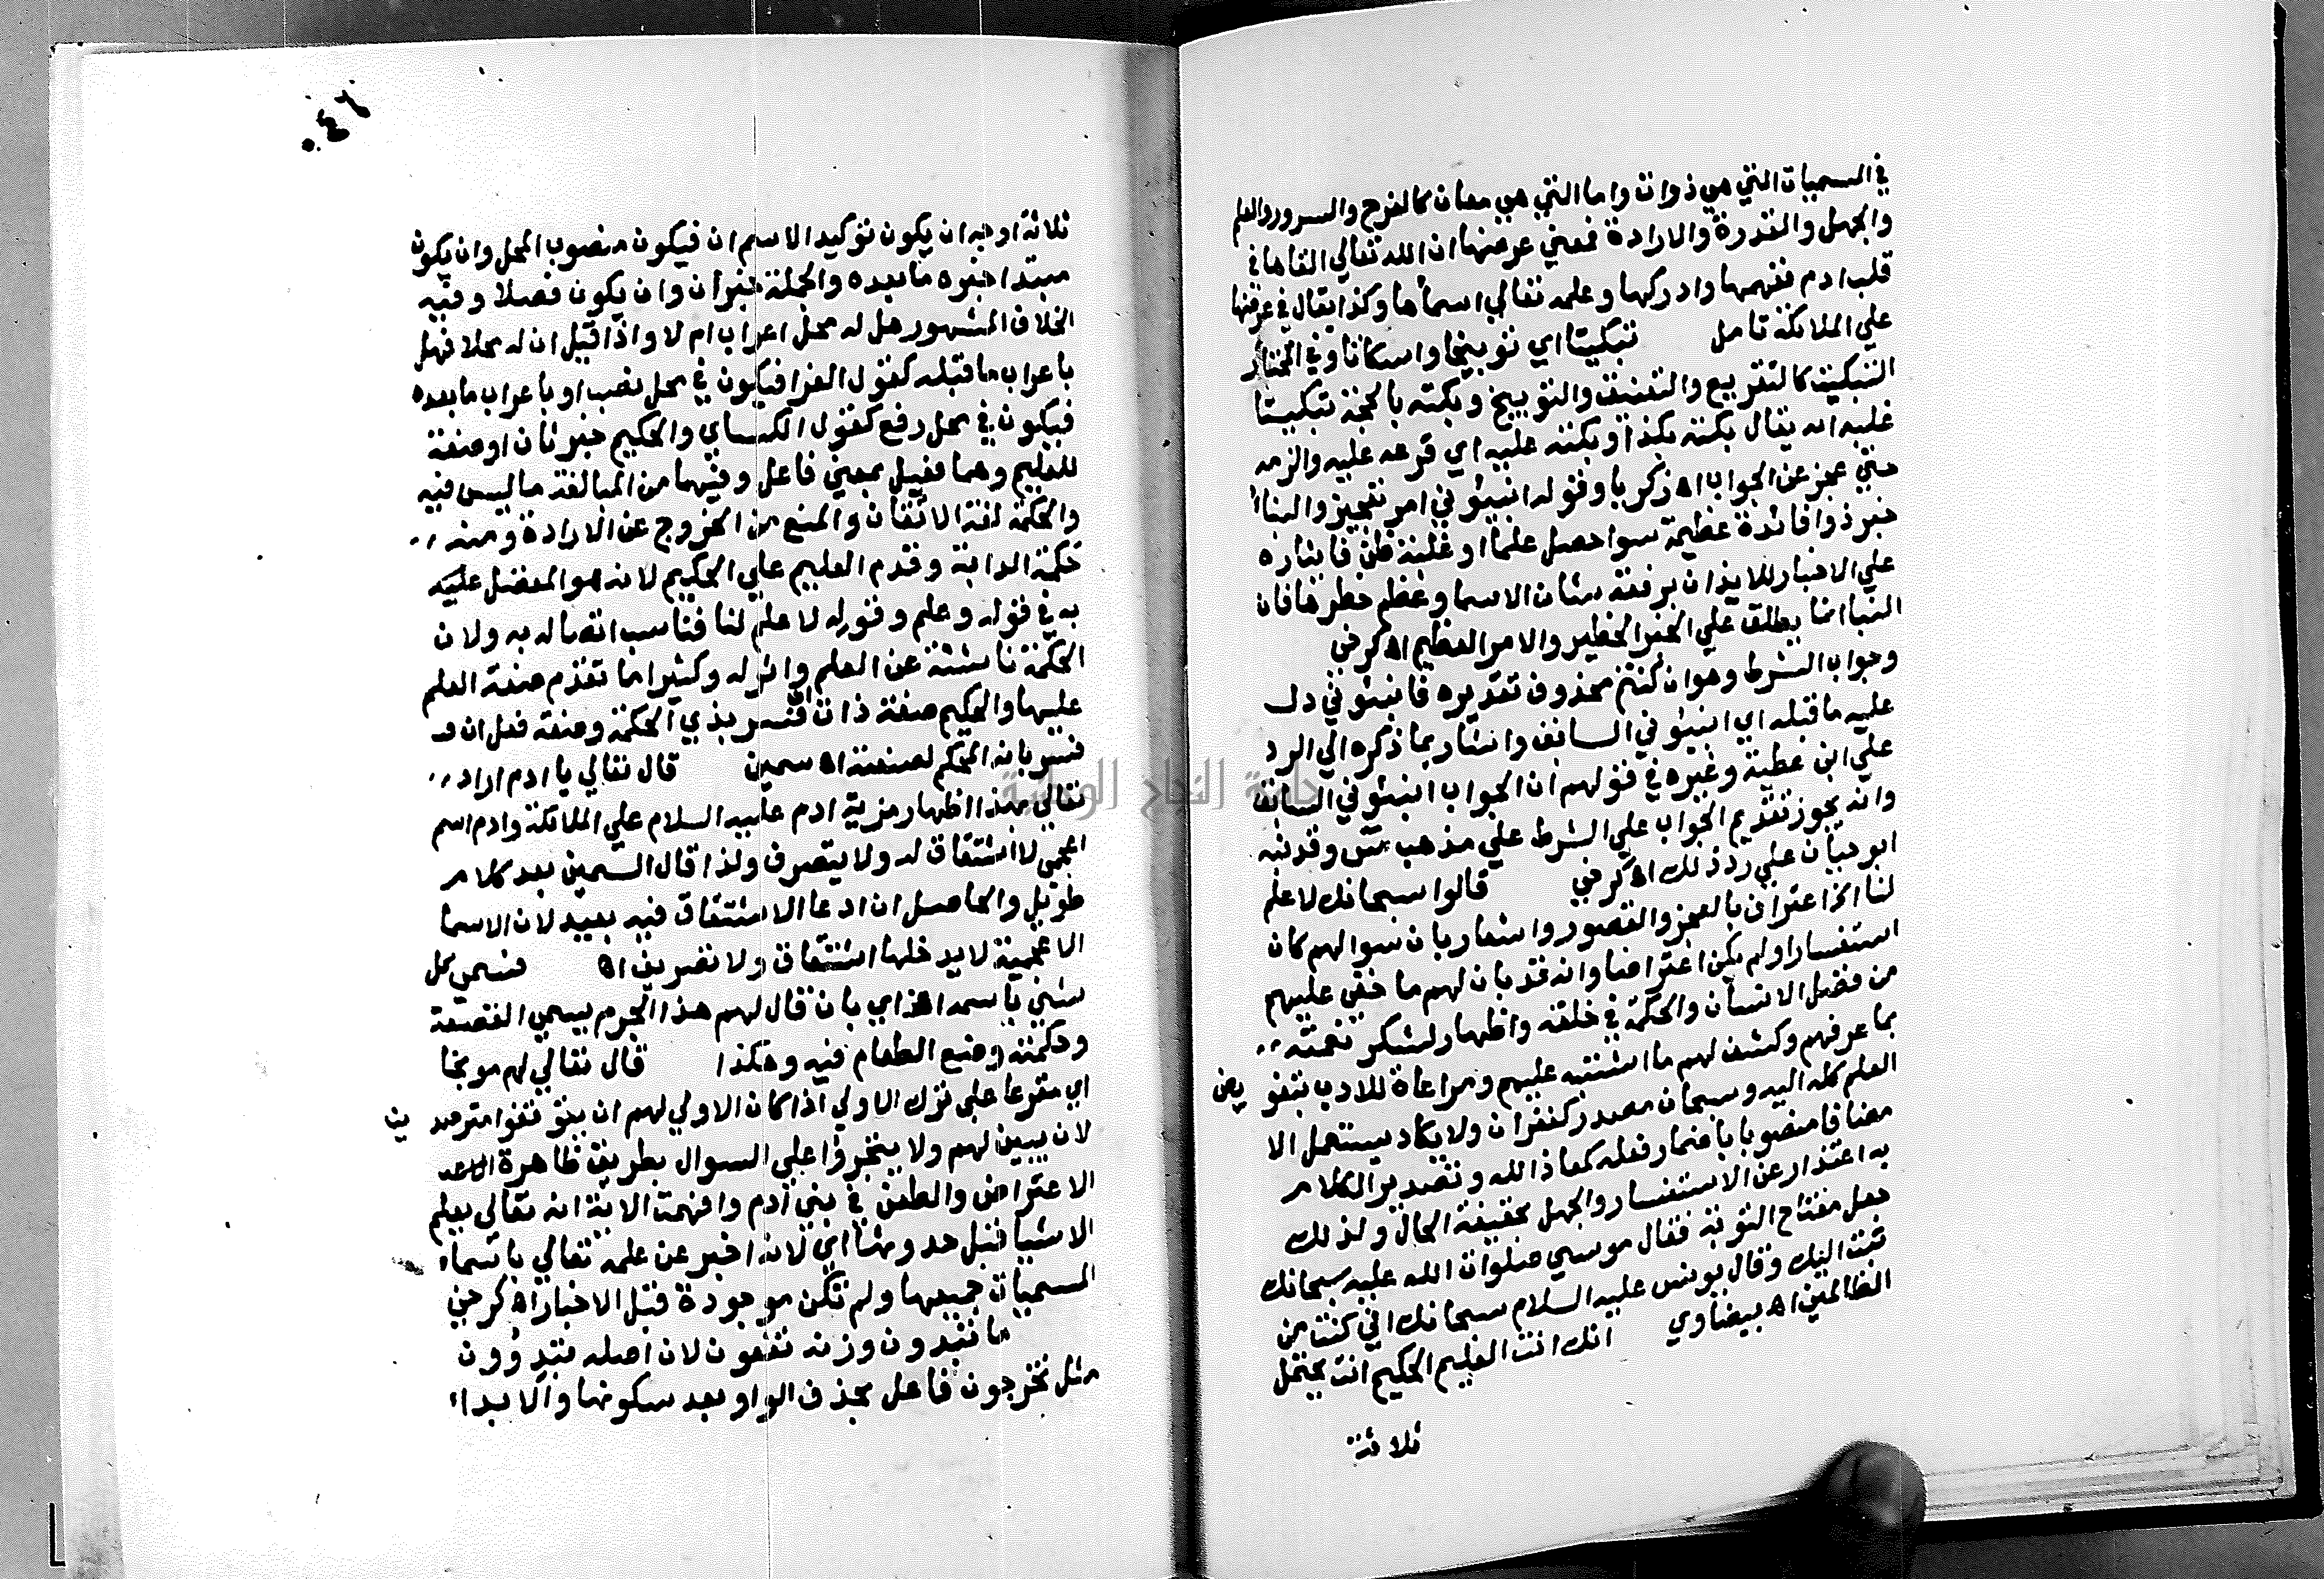 في المسميات التي هي ذوات واما التي هي معان كالفرح والسرور والعلم
والجهل والقدرة والارادة فمعني عرضها ان الله تعالي القاها في
قلب ادم ففهمها وادركها وعلمه تعالي اسمأها وكذا يقال في عرضها
علي الملائكة تامل تبكيتا اي توبيخا واسكاتا وفي المختار
التبكيت كالتقريع والتعنيف والتوبيخ وبكته بالحجة تبكيتا
غلبه اه يقال بكته بكذا وبكته عليه اي قرعه عليه والزمه
حتي عجز عن الجواب اه زكريا وقوله انبئوني امر تعجيز والنبأ
خبر ذوا فائدة عظيمة سوا حصل علما او غلبة ظن فايثاره
علي الاخبار للايذان برفعة شان الاسما وعظم خطرها فان
النبا انما يطلق علي الخبر الخطير والامر العظيم اه كرخي
وجواب الشرط وهو ان كنتم محذوف تقديره فانبئوني دل
عليه ما قبله اي انبئوني السابق واشار بما ذكره الي الرد
علي ابن عطية وغيره في قولهم ان الجواب انبئوني السابق
وانه يجوز تقديم الجواب علي الشرط علي مذهب س وقد نبه
ابو حيان علي رد ذلك اه كرخي قالوا سبحانك لا علم
لنا الخ اعتراف بالعجز والقصور واشعار بان سوالهم كان
استفسارا ولم يكن اعتراضا وانه قد بان لهم ما خفي عليهم
من فضل الانسان والحكمة في خلقه واظهار لشكر نعمته
بما عرفهم وكشف لهم ما اشتبه عليهم ومراعاة للادب بتفو يض
العلم كله اليه وسبحان مصدر كغفران ولا يكاد يستعمل الا
مضافا منصوبا باضمار فعله كمعاذ الله وتصدير الكلام
به اعتذار عن الاستفسار والجهل بحقيقة الحال ولذلك
جعل مفتاح التوبة فقال موسي صلوات الله عليه سبحانك
تبت اليك وقال يونس عليه السلام سبحانك اني كنت من
الظالمين اه بيضاوي انك انت العليم الحكيم انت يحتمل
ثلاثة
٠٤٦
ثلاثة اوجه ان يكون توكيد الاسم ان فيكون منصوب المحل وان يكون
مبتدا خبره ما بعده والجملة خبر ان وان يكون فصلا وفيه
الخلاف المشهور هل له محل اعراب ام لا واذا قيل ان له محلا فهل
باعراب ما قبله كقول الفرا فيكون في محل نصب او باعراب ما بعده
فيكون في محل رفع كقول الكساي والحكيم خبر ثان او صفة
للعليم وهما فعيل بمعني فاعل وفيهما من المبالغة ما ليس فيه
والحكمة لغة الاتقان والمنع من الخروج عن الارادة ومنه
حكمة الدابة وقدم العليم علي الحكيم لانه هو المتصل عليه
به في قوله وعلم وقوله لا علم لنا فناسب اتصاله به ولان
الحكمة ناشئة عن العلم واثر له وكثيرا ما تقدم صفة العلم
عليها والحكيم صفة ذات ان فسر بذي الحكمة وصفة فعل ان
فسر بانه المحكم لصنعته اه سمين قال تعالي يا ادم اراد
تعالي بهذا اظهار مزية ادم عليه السلام علي الملائكة وادم اسم
اعجمي لا اشتقاق له ولا يتصرف ولذا قال السمين بعد كلام
طويل والحاصل ان ادعا الاشتقاق فيه بعيد لان الاسما
الاعجمية لا يدخلها اشتقاق ولا تصريف اه فسمي كل
شيء باسمه اه اي بان قال لهم هذا الجرم يسمي القصعة
وحكمته وضع الطعام فيه وهكذا قال تعالي لهم موبخا
اي مقرعا علي ترك الاولي اذا كان الاولي لهم ان يتوقفوا مترصد ين
لان يبين لهم ولا يتجروا علي السوال بطريق ظاهرة
الاعتراض والطعن في بني ادم وافهمت الاية انه تعالي يعلم
الاشيا قبل حدوثها اي لانه اخبر عن علمه تعالي باسماء
المسميات جميعها ولم تكن موجودة قبل الاخبار اه كرخي
ما تبدون وزنه تفعون لان اصله تبدوون
مثل تخرجون فاعل بحذف الواو بعد سكونها والابداء